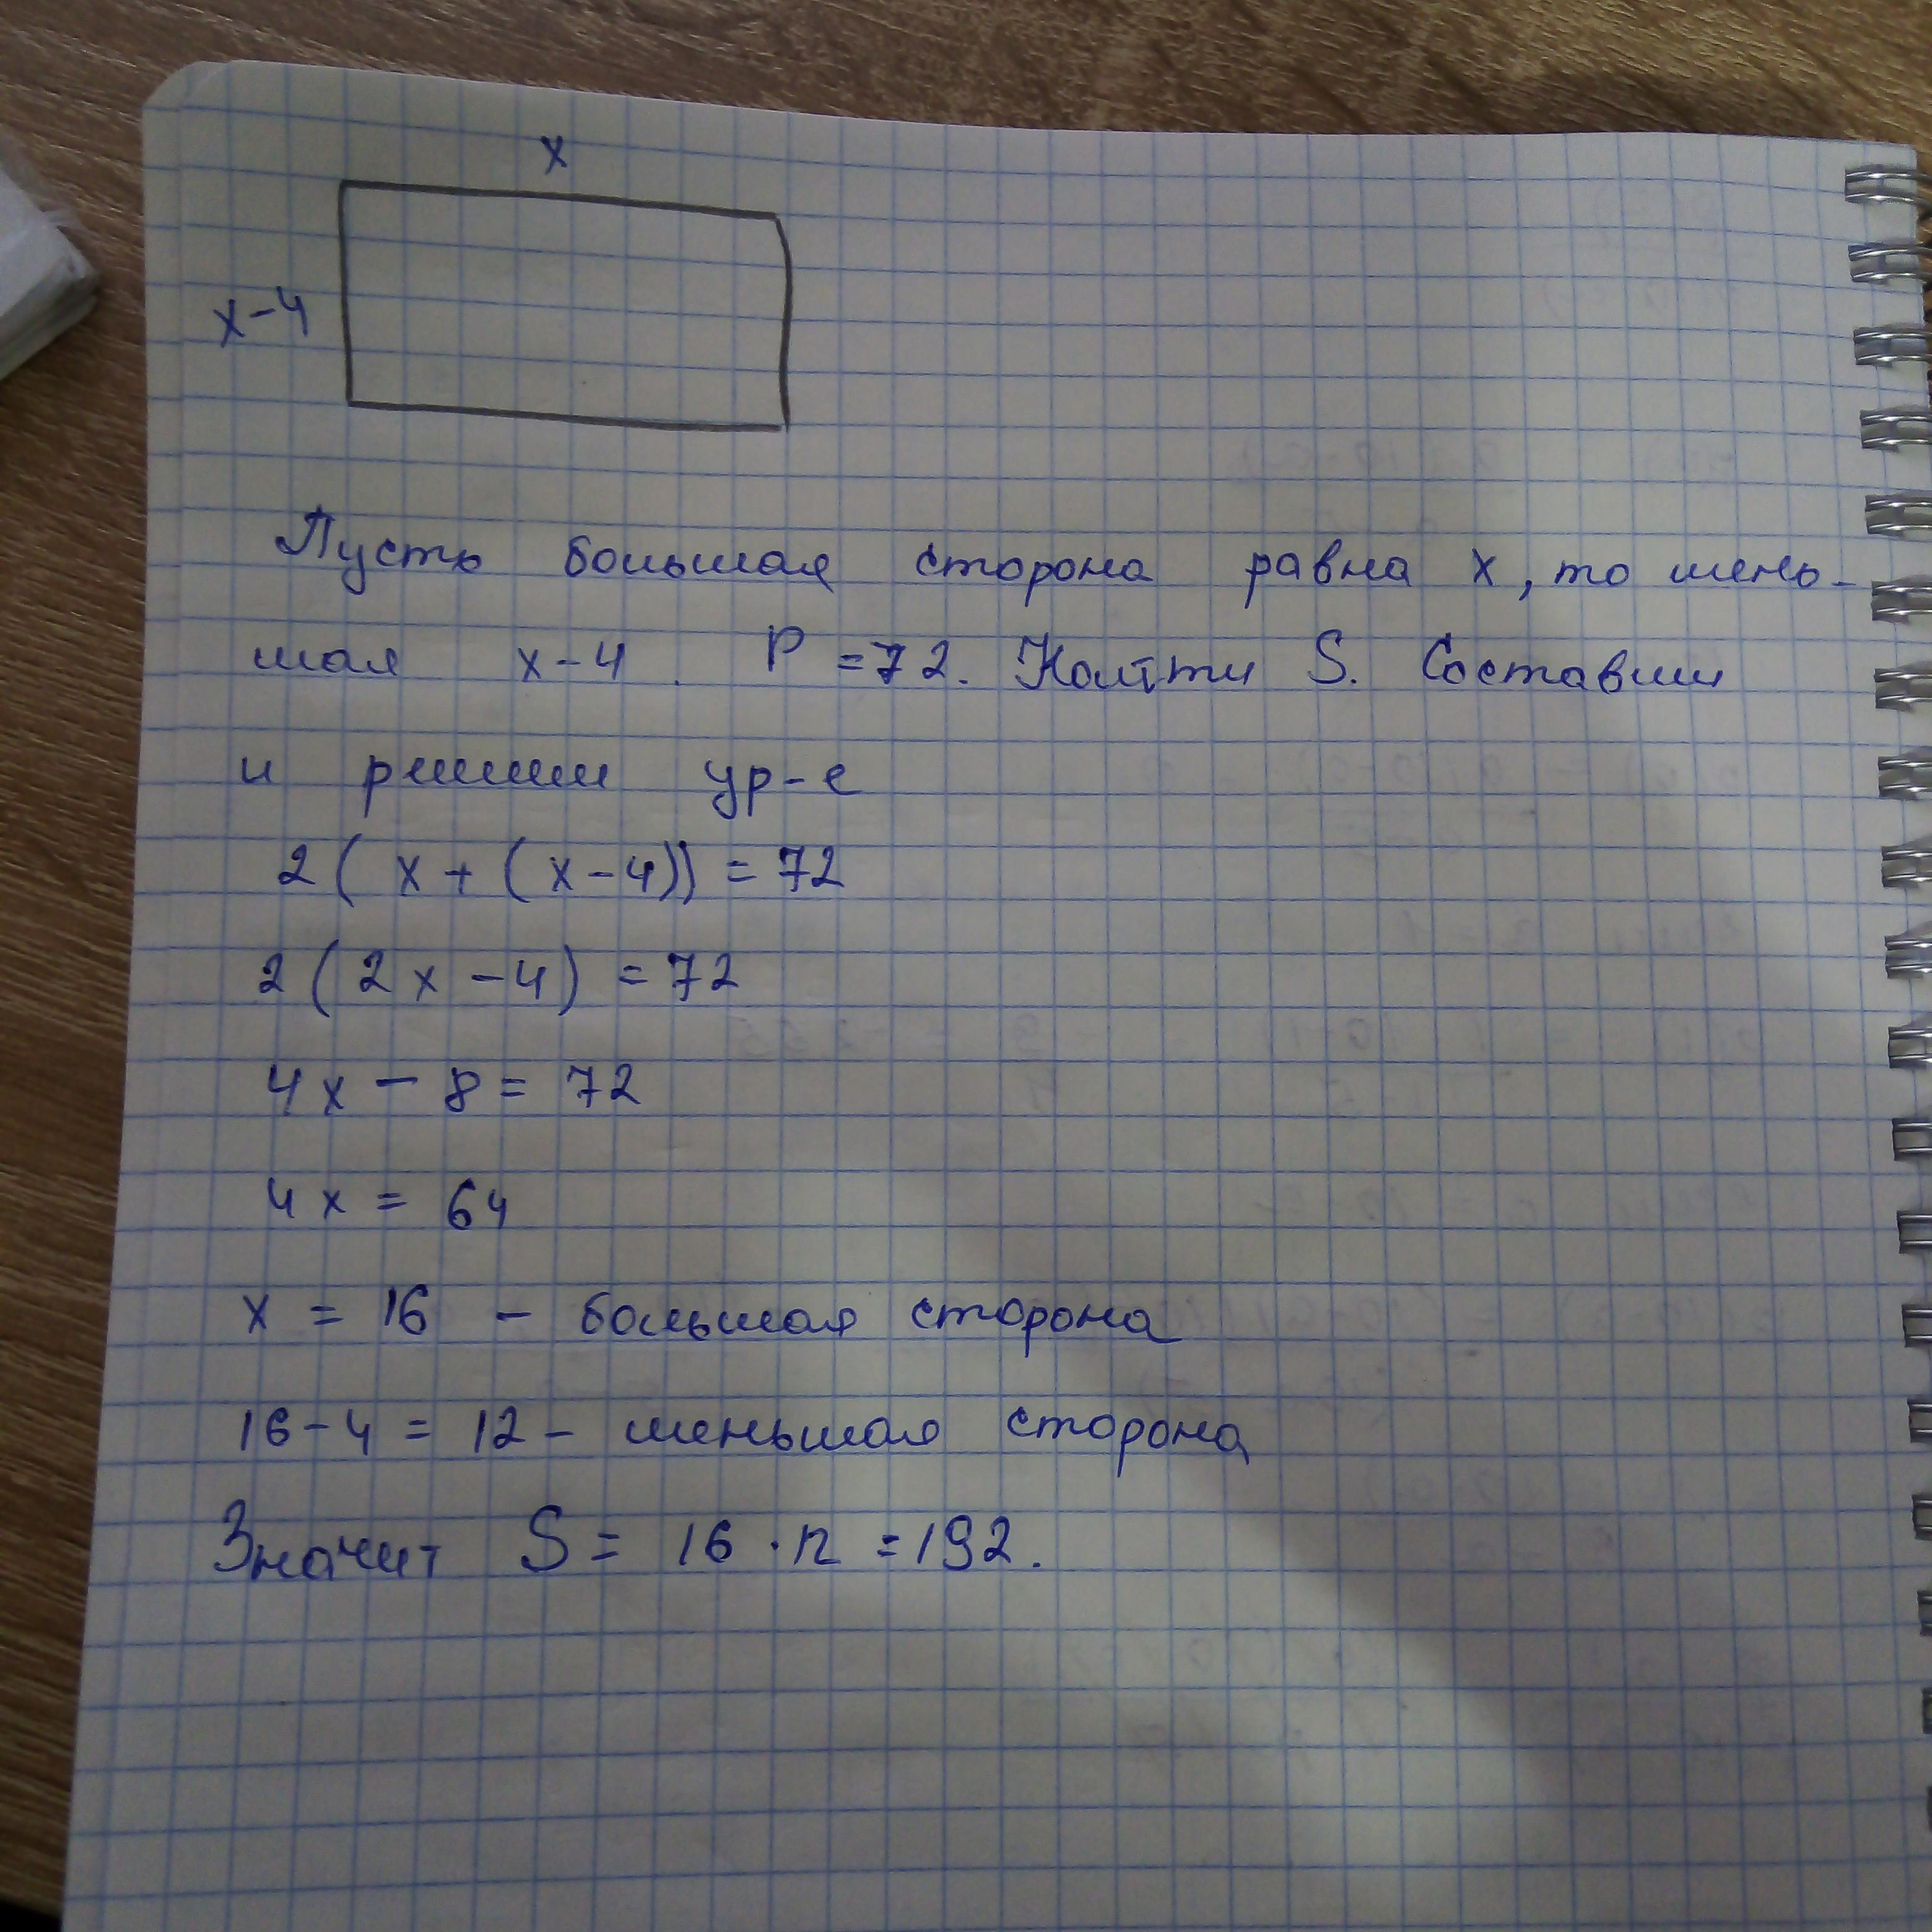 x
x-4
Пусть большая сторона равна x, то мень-
шая x-4. P =72. Найти S. Составим
и решим ур-е
2( x+ (x-4)) = 72
2(2x-4) =72
4x - 8 = 72
4x = 64
x = 16 - большая сторона
16-4 = 12 - меньшая сторона
Значит S = 16 · 12 = 192.